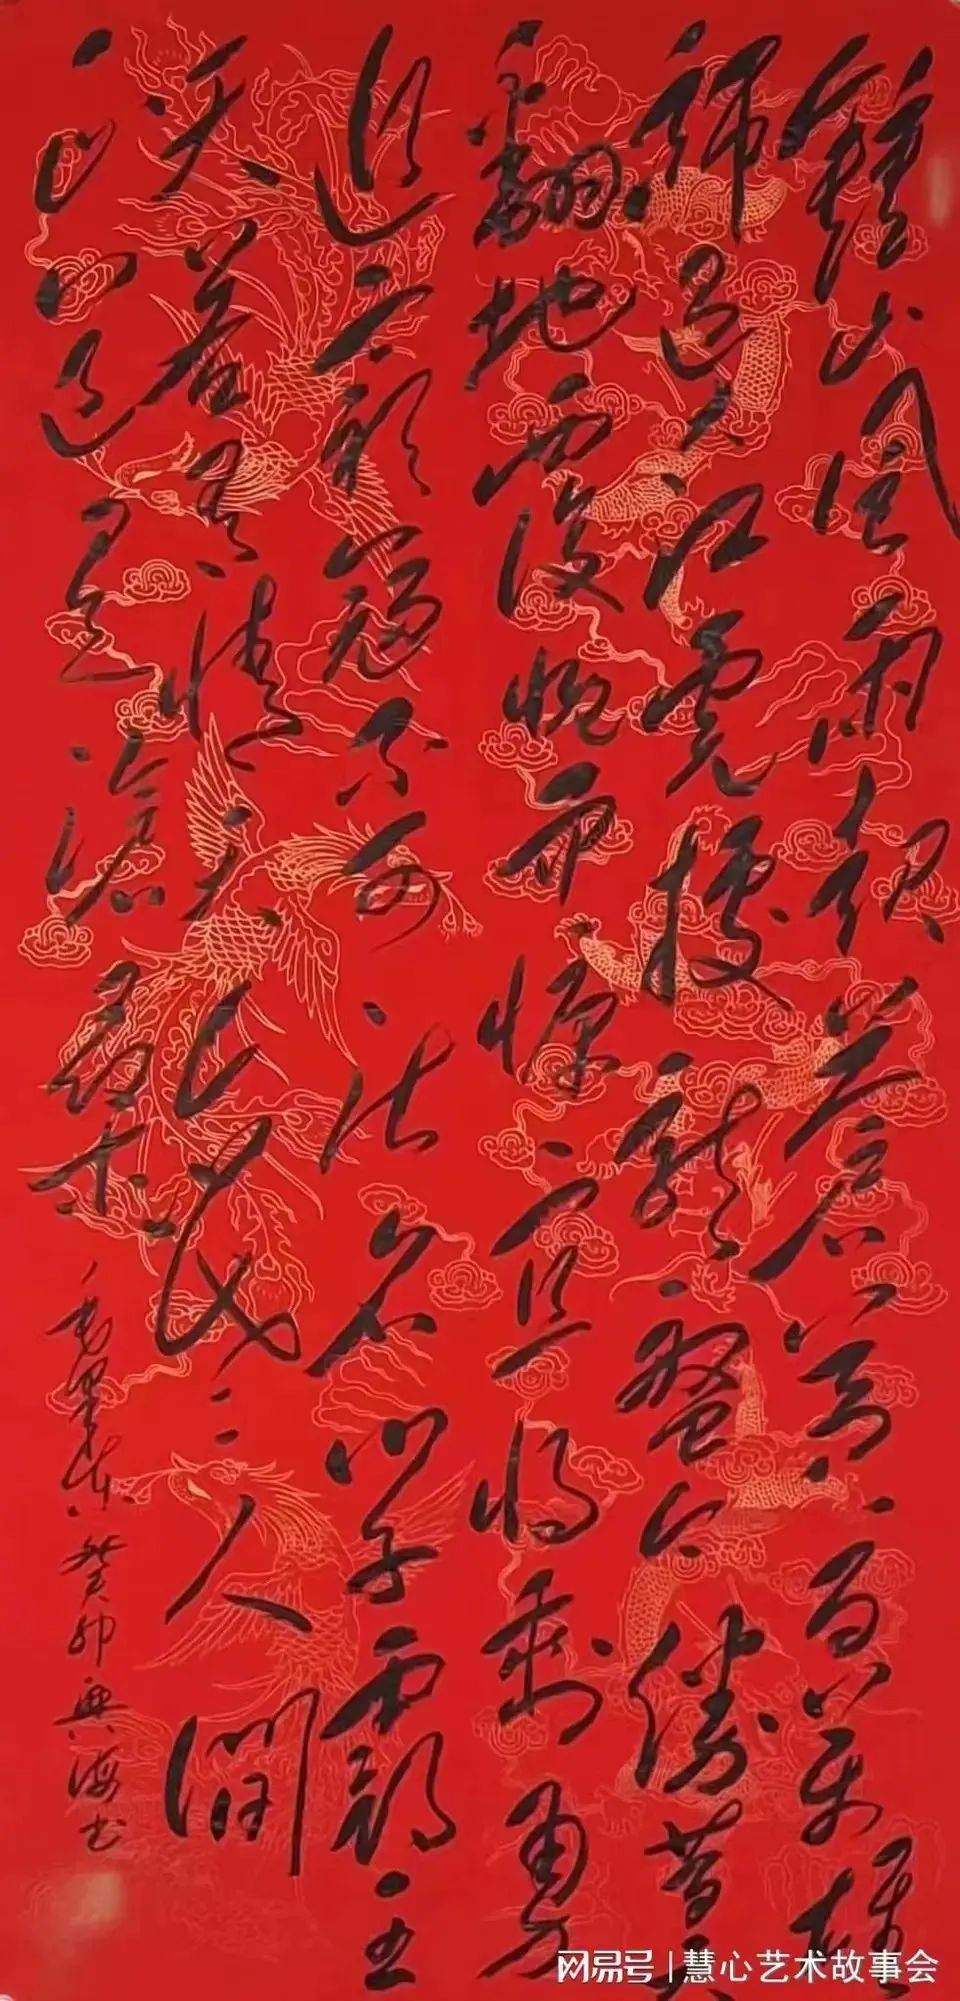 鐘山风雨起苍黄百万雄
师过大江虎据龙盘今胜昔天
翻地覆慨而慷宜将剩勇
追穷寇不可沽名学霸王
天若有情天亦老人间
正道是沧桑
毛泽东 癸卯兴海书
网易号 | 慧心艺术故事会